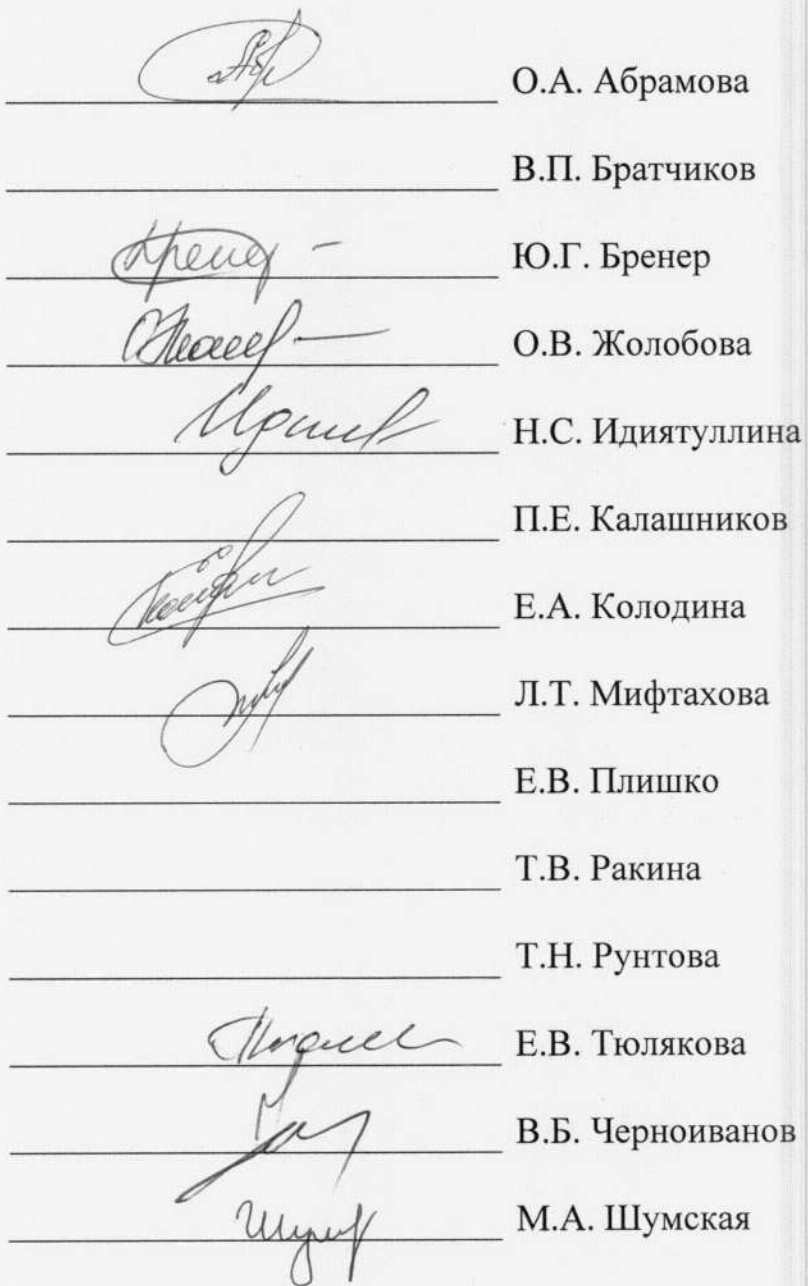 О.А. Абрамова
В.П. Братчиков
Ю.Г. Бренер
О.В. Жолобова
Н.С. Идиятуллина
П.Е. Калашников
Е.А. Колодина
Л.Т. Мифтахова
Е.В. Плишко
Т.В. Ракина
Т.Н. Рунтова
Е.В. Тюлякова
В.Б. Черноиванов
М.А. Шумская